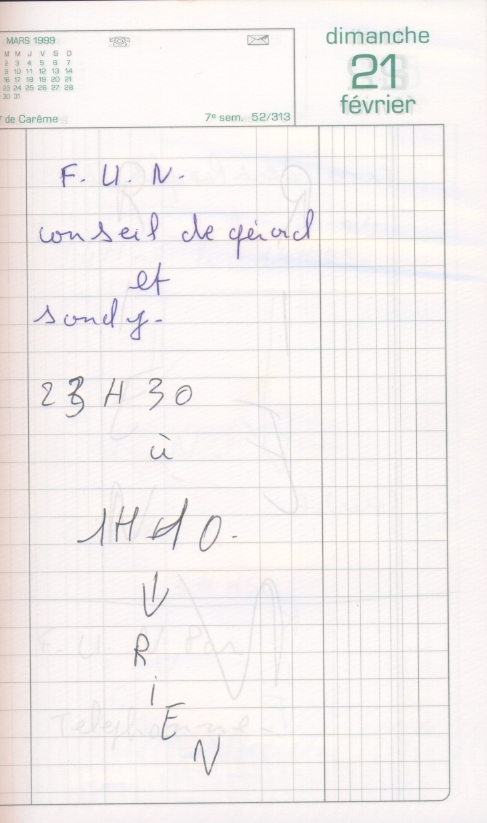 MARS 1999
dimanche
21
février
M M J V S D
2 3 4 5 6 7
9 10 11 12 13 14
16 17 18 19 20 21
23 24 25 26 27 28
30 31
de Carême
7e sem. 52/313
F. U. N.
conseil de gérard
et
sandy.
23 H 30
à
1H10.
R
i
E
N